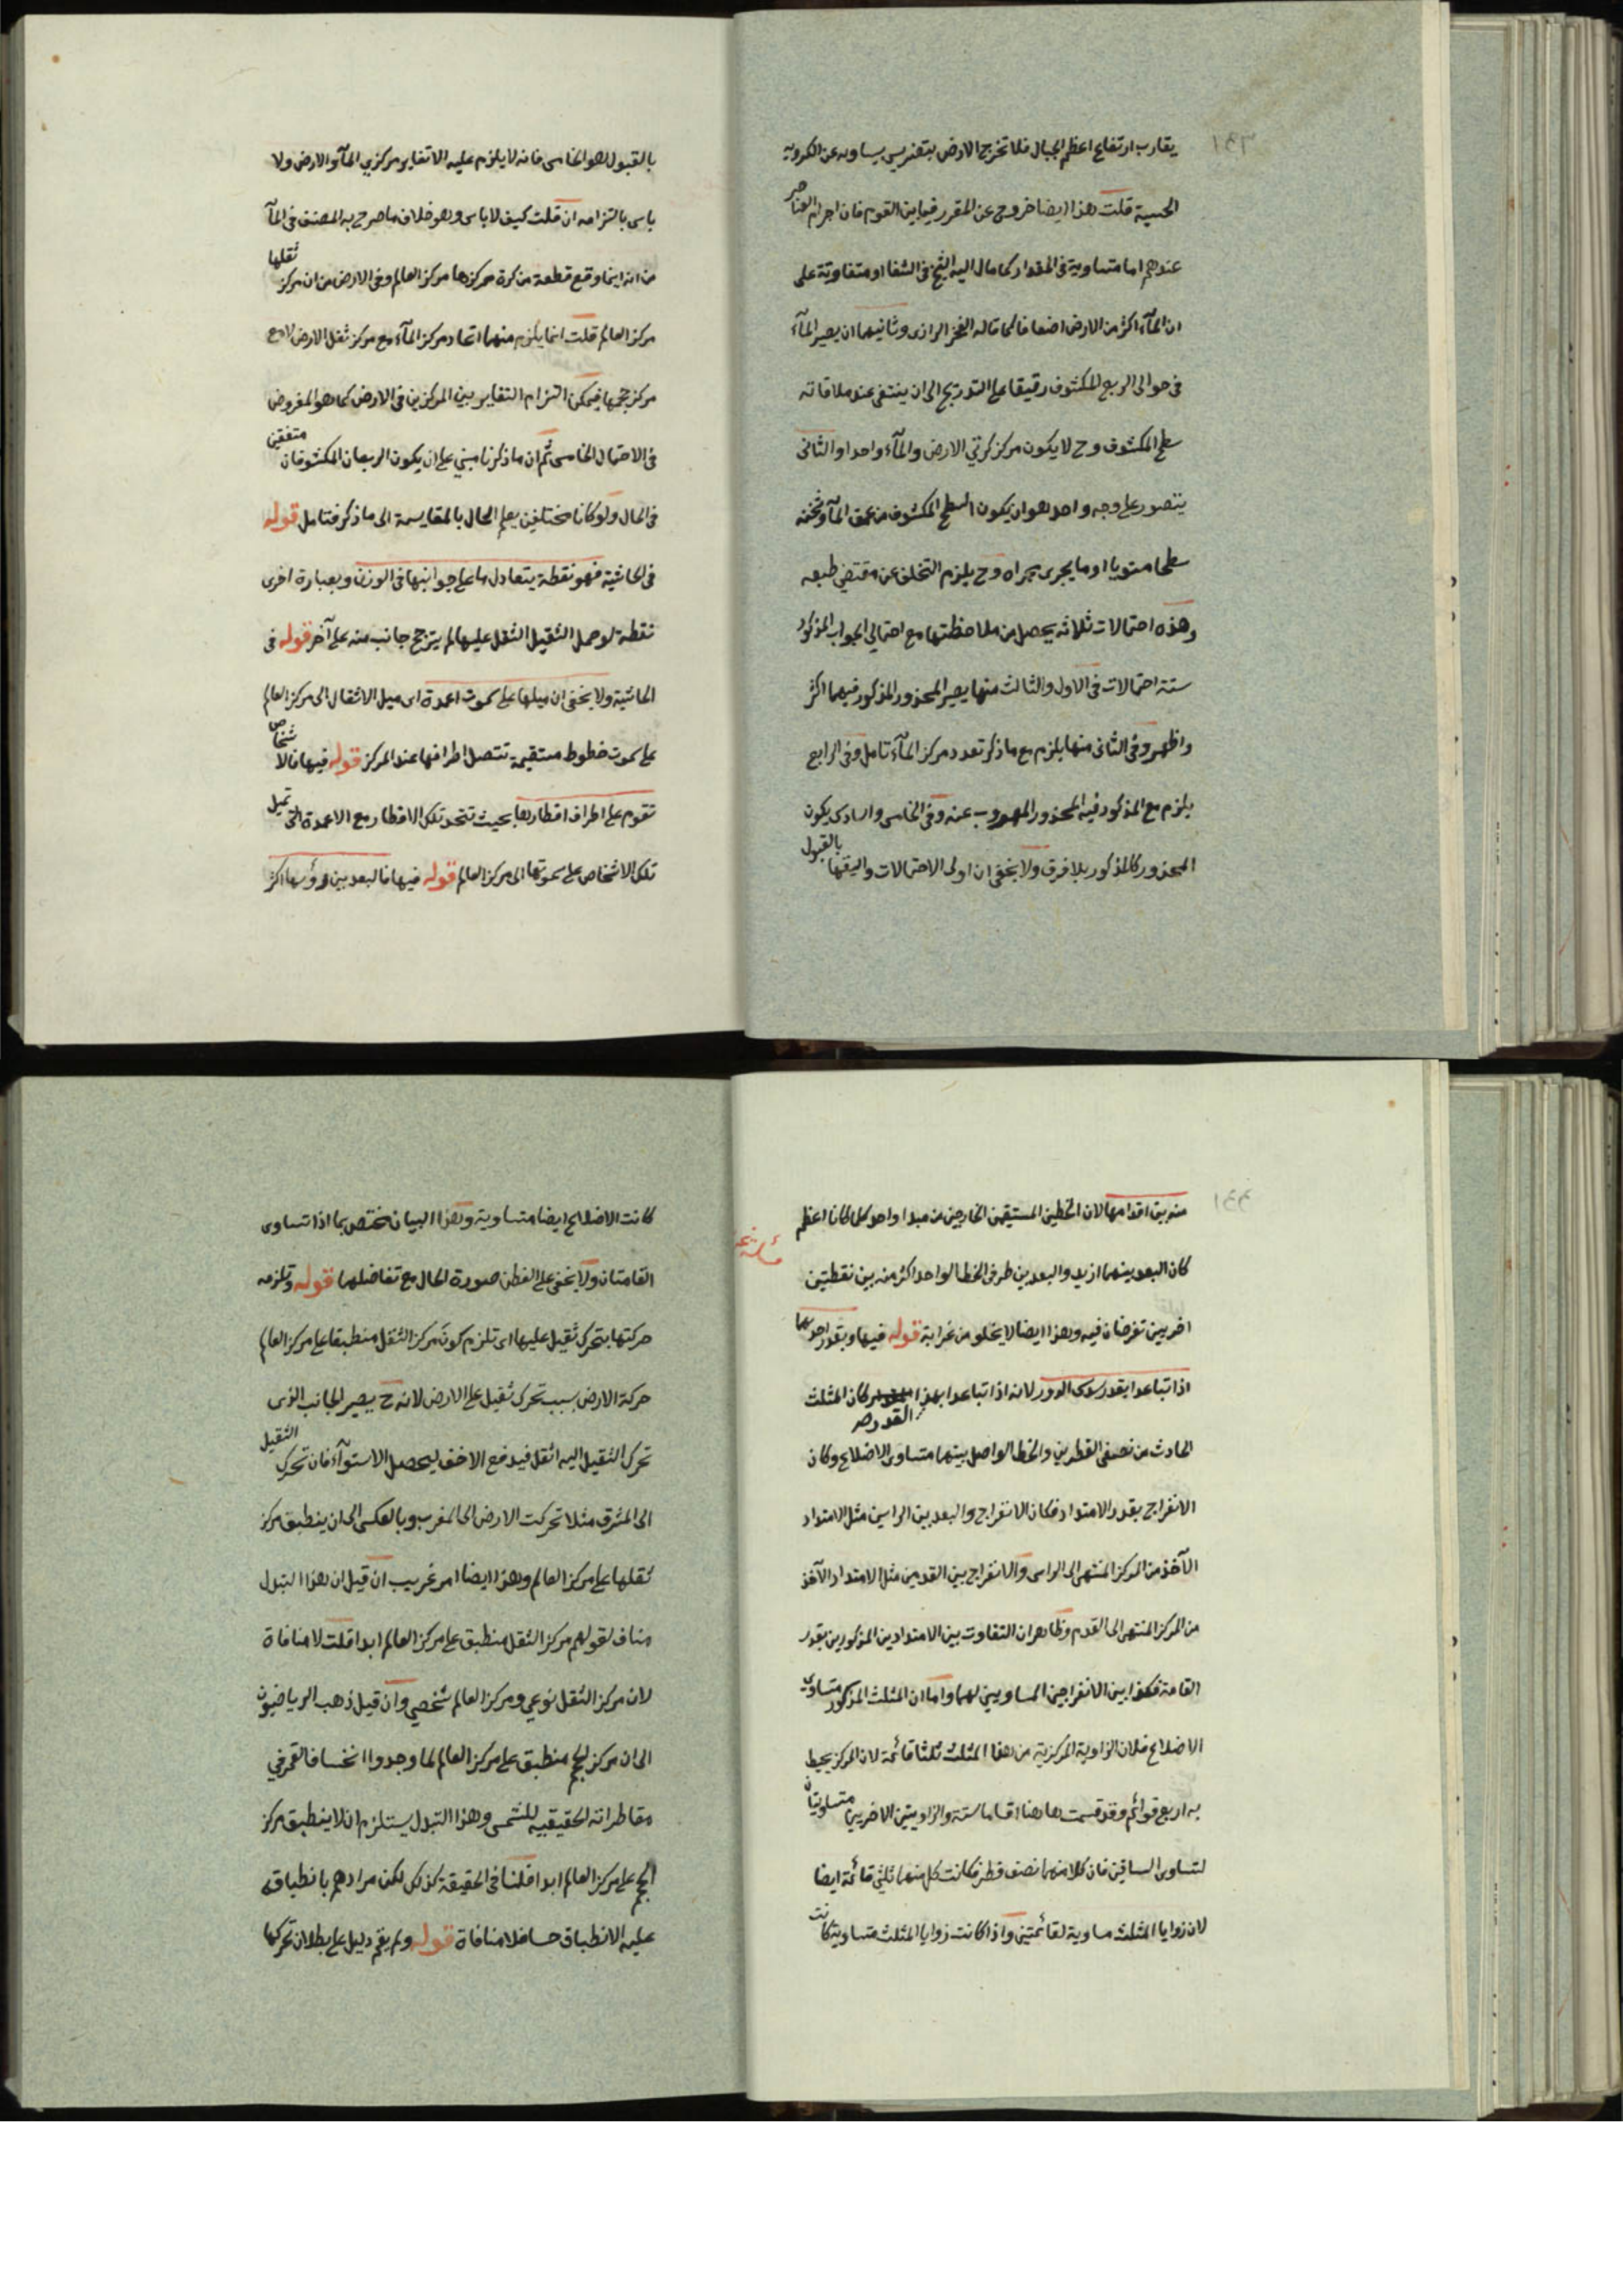 ١٤٣
يقارب ارتفاع اعظم الجبال فلا تخرج الارض بتضريس يساويه عن الكروية
الحسية قلت هذا ايضا خروج عن المقرر فيما بين القوم فان اجرام العناصر
عندهم اما متساوية فى المقدار كما مال اليه الشيخ فى الشفا او متفاوتة على
ان المآء اكثر من الارض اضعافا كما قاله الفخر الرازى وثانيهما ان يصير المآء
فى حوالى الربع المكشوف رقيقا على التدريج الى ان ينتفى عند ملاقاته
سطح المكشوف وح لا يكون مركز كرتي الارض والمآء واحدا والثانى
يتصور على وجه واحد هو ان يكون السطح المكشوف من عمق المآء وثخنه
سطحا مستويا او ما يجرى مجراه وح يلزم التخلف عن مقتضي طبعه
وهذه احتمالات ثلاثه يحصل من ملاحظتها مع احتمالي الجواب المذكور
ستة احتمالات فى الاول والثالث منها يصير المحذور المذكور فيهما اكثر
واظهر وفى الثانى منها يلزم مع ما ذكر تعدد مركز المآء تامل وفى الرابع
يلزم مع المذكور فيه المحذور المهروب عنه وفى الخامس والسادس يكون
المحذور كالمذكور بلا فرق ولا يخفى ان اولى الاحتمالات واليقها بالقبول
بالقبول هو الخامس فانه لا يلزم عليه الا تغاير مركزي المآء والارض ولا
باس بالتزامه ان قلت كيف لا باس وهو خلاف ما صرح به المصنف فى المآء
من انه اينما وقع قطعة من كرة مركزها مركز العالم وفى الارض من ان مركز ثقلها
مركز العالم قلت انما يلزم منهما اتحاد مركز المآء مع مركز ثقل الارض لا مع
مركز حجمها فيمكن التزام التغاير بين المركزين فى الارض كما هو المفروض
فى الاحتمال الخامس ثم ان ما ذكرنا مبني على ان يكون الربعان المكشوفان متفقين
فى الحال ولو كانا مختلفين يعلم الحال بالمقايسة الى ما ذكر فتامل قوله
فى الحاشية فهو نقطة يتعادل ما على جوانبها فى الوزن وبعبارة اخرى
نقطة لو حمل الثقيل الثقل عليها لم يترجح جانب منه على آخر قوله فى
الحاشية ولا يخفى ان ميلها على سموت اعمدة اى ميل الاثقال الى مركز العالم
على سموت خطوط مستقيمة تتصل اطرافها عند المركز قوله فيها فالاشخاص
تقوم على اطراف اقطارها بحيث تتحد تلك الاقطار مع الاعمدة التى تميل
تلك الاشخاص على سموتها الى مركز العالم قوله فيها فالبعد بين رؤسها اكثر
١٤٤
منه بين اقدامها لان الخطين المستقيمين الخارجين من مبدا واحد كلما كانا اعظم
كان البعد بينهما ازيد والبعد بين طرفى الخط الواحد اكثر منه بين نقطتين
اخريين تفرضان فيه وهذا ايضا لا يخلو من غرابة قوله فيها وبقدر احدهما
اذا تباعدا بقدر سدس الدور لانه اذا تباعدا بهذا القدر صر كان المثلث
الحادث من نصفى القطرين والخط الواصل بينهما متساوى الاضلاع وكان
الانفراج بقدر الامتداد فكان الانفراج والبعد بين الراسين مثل الامتداد
الآخذ من المركز المنتهى الى الراس والانفراج بين القدمين مثل الامتداد الآخذ
من المركز المنتهى الى القدم وظاهر ان التفاوت بين الامتدادين المذكورين بقدر
القامة فكذا بين الانفراجين المساويين لهما واما ان المثلث المذكور متساوى
الاضلاع فلان الزاوية المركزية من هذا المثلث ثلثا قائمة لان المركز يحيط
به اربع قوائم وقد قسمت هاهنا اقساما ستة والزاويتين الاخريين متساويتان
لتساوى الساقين فان كلا منهما نصف قطر فكانت كل منهما ثلثي قائمة ايضا
لان زوايا المثلث مساوية لقائمتين واذا كانت زوايا المثلث متساوية كانت
كانت الاضلاع ايضا متساوية وهذا البيان مختص بما اذا تساوى
القامتان ولا يخفى على الفطن صورة الحال مع تفاضلهما قوله وتلزمه
حركتها بتحرك ثقيل عليها اى تلزم كون مركز الثقل منطبقا على مركز العالم
حركة الارض بسبب تحرك ثقيل على الارض لانه ح يصير الجانب الذى
تحرك الثقيل اليه اثقل فيدفع الاخف ليحصل الاستوآء فان تحرك الثقيل
الى المشرق مثلا تحركت الارض الى المغرب وبالعكس الى ان ينطبق مركز
ثقلها على مركز العالم وهذا ايضا امر غريب ان قيل ان هذا التبدل
مناف لقولهم مركز الثقل منطبق على مركز العالم ابدا قلت لا منافاة
لان مركز الثقل نوعي ومركز العالم شخصي وان قيل ذهب الرياضيون
الى ان مركز الحجم منطبق على مركز العالم لما وجدوا انخساف القمر في
مقاطراته الحقيقيه للشمس وهذا التبدل يستلزم ان لا ينطبق مركز
الحجم على مركز العالم ابدا قلنا فى الحقيقة كذلك لكن مرادهم بانطباقه
عليه الانطباق حسا فلا منافاة قوله ولم يقم دليل على بطلان تحركها